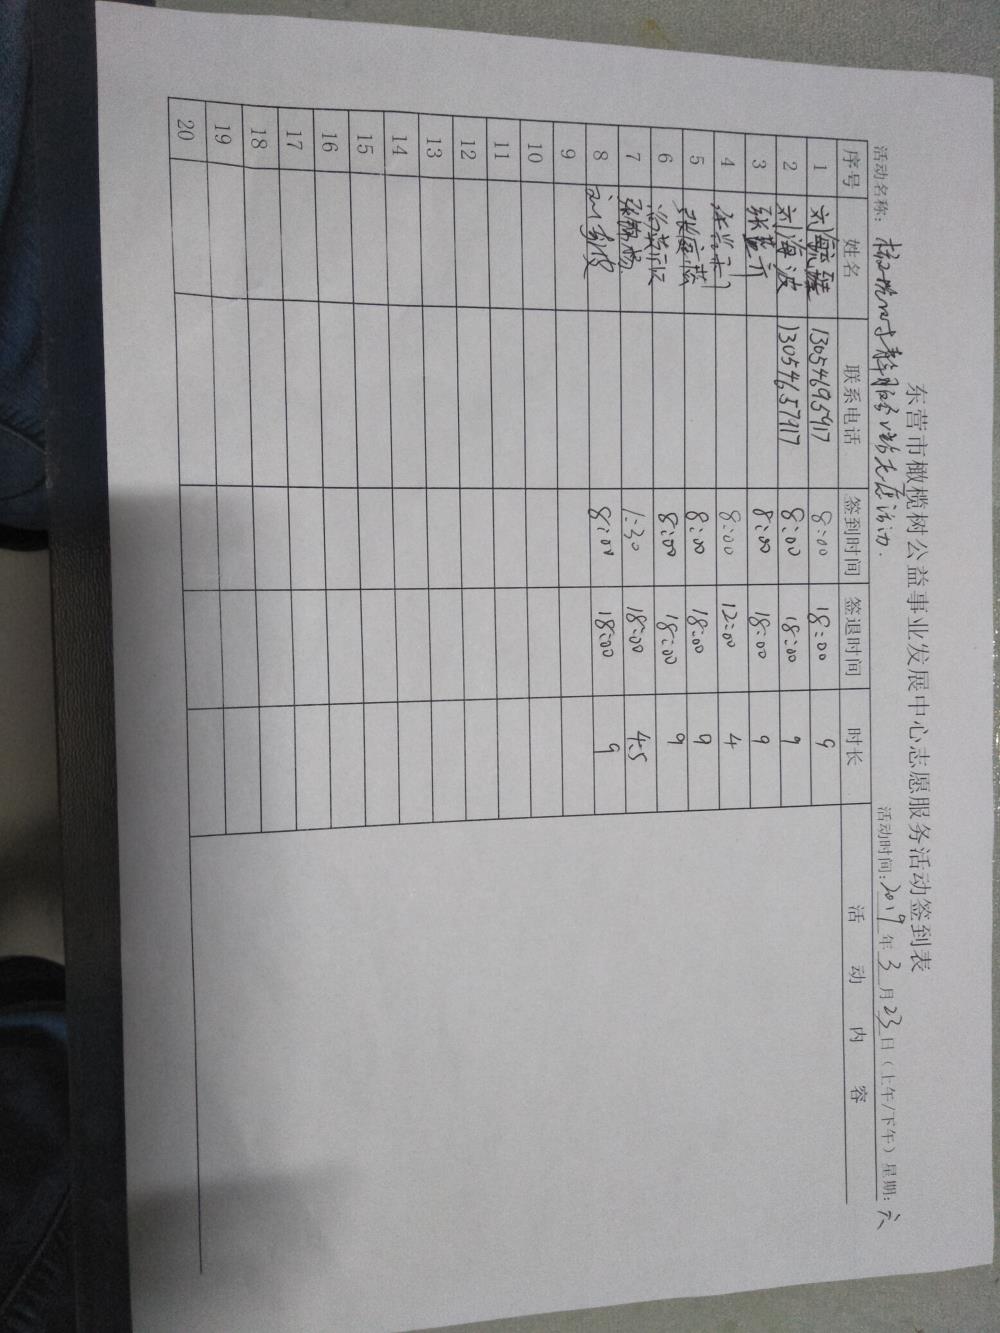 东营市橄榄树公益事业发展中心志愿服务活动签到表
活动名称: 活动. 活动时间: 2019年3月23日（上午/下午）星期: 六
序号 姓名 联系电话 签到时间 签退时间 时长 活动内容
1 刘 13054695917 8:00 18:00 9
2 刘海波 13054657917 8:00 18:00 9
3 张 8:00 18:00 9
4 8:00 12:00 4
5 张海燕 8:00 18:00 9
6 8:00 18:00 9
7 张 杨 1:30 18:00 4.5
8 8:00 18:00 9
9
10
11
12
13
14
15
16
17
18
19
20